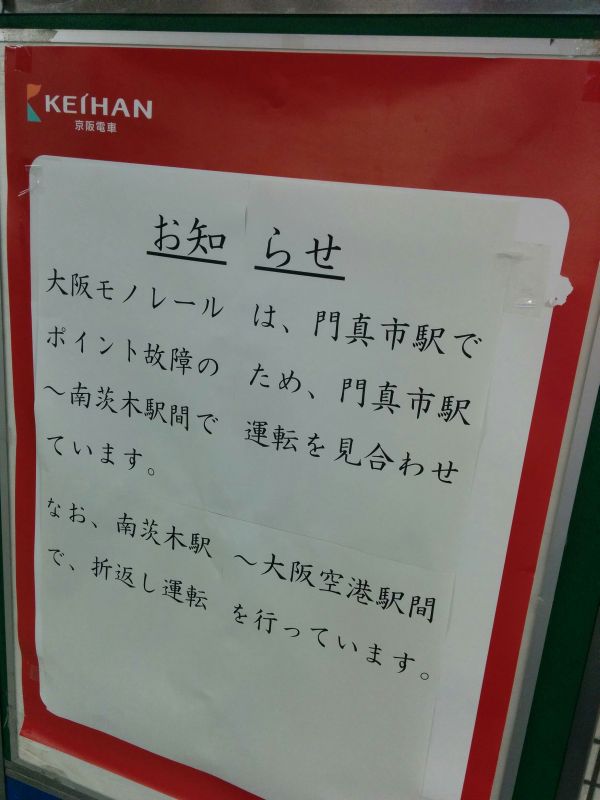 KEIHAN
京阪電車
お知らせ
大阪モノレールは、門真市駅で
ポイント故障のため、門真市駅
～南茨木駅間で運転を見合わせ
ています。
なお、南茨木駅～大阪空港駅間
で、折返し運転を行っています。